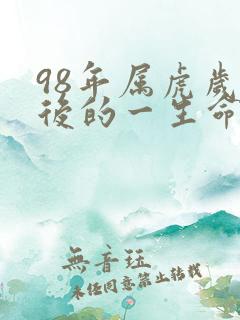 98年属虎歲
後的一生命
無音珏
未经同意禁止转载